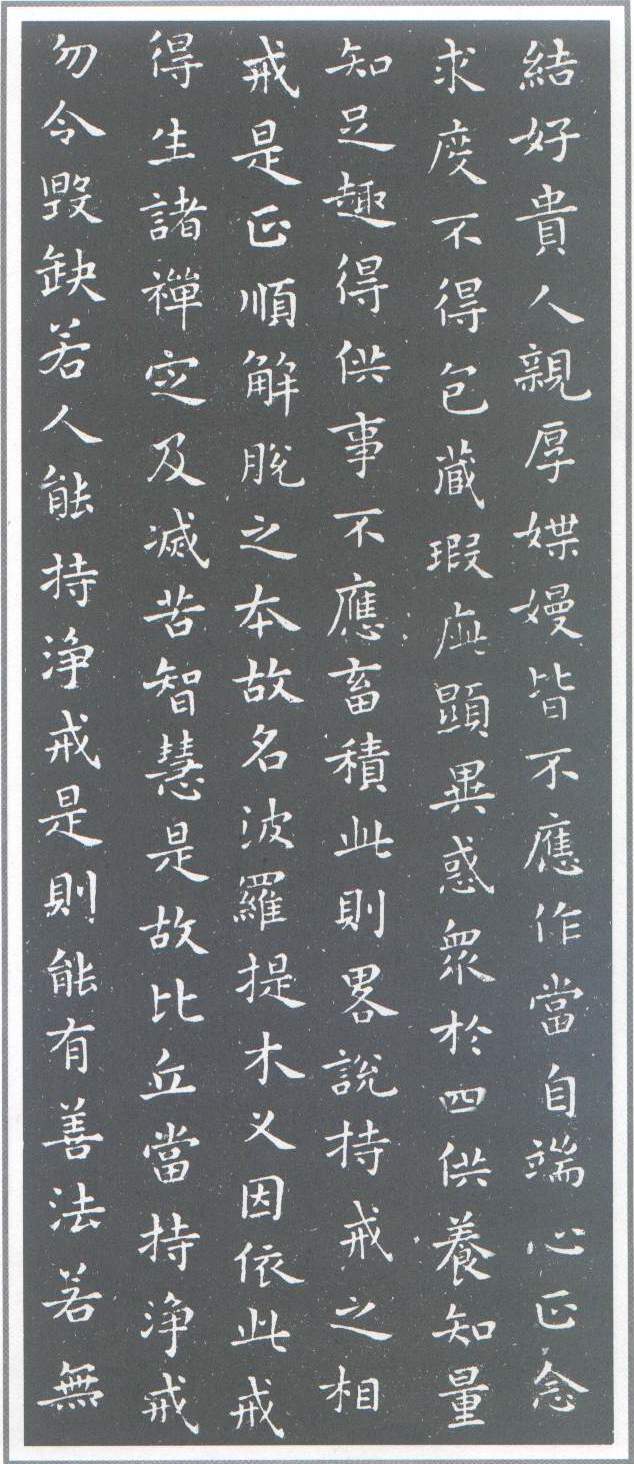 結好貴人親厚媟嫚皆不應作當自端心正念
求度不得包藏瑕疵顯異惑眾於四供養知量
知足趣得供事不應畜積此則畧說持戒之相
戒是正順解脫之本故名波羅提木义因依此戒
得生諸禪定及滅苦智慧是故比丘當持淨戒
勿令毀缺若人能持淨戒是則能有善法若無